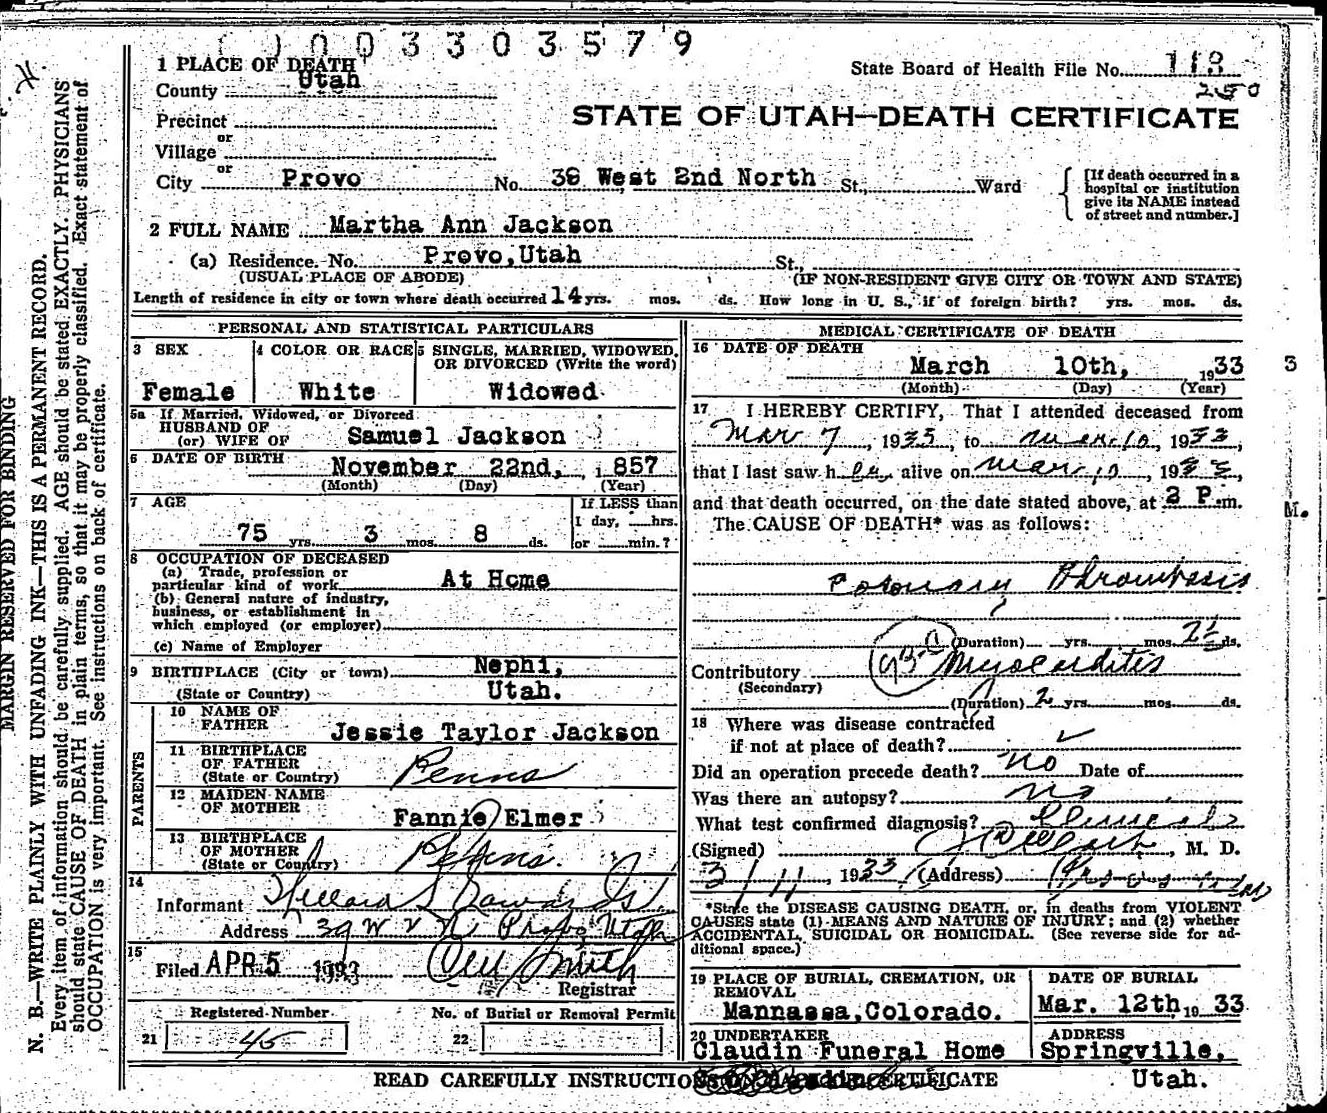 003303579
1 PLACE OF DEATH
State Board of Health File No. 113
County Utah
250
STATE OF UTAH—DEATH CERTIFICATE
Precinct
or
Village
or
City Provo No. 39 West 2nd North St., Ward
[If death occurred in a hospital or institution give its NAME instead of street and number.]
2 FULL NAME Martha Ann Jackson
(a) Residence. No. Provo, Utah St.,
(USUAL PLACE OF ABODE) (IF NON-RESIDENT GIVE CITY OR TOWN AND STATE)
Length of residence in city or town where death occurred 14 yrs. mos. ds. How long in U. S., if of foreign birth? yrs. mos. ds.
PERSONAL AND STATISTICAL PARTICULARS
3 SEX
Female
4 COLOR OR RACE
White
5 SINGLE, MARRIED, WIDOWED, OR DIVORCED (Write the word)
Widowed
5a If Married, Widowed, or Divorced
HUSBAND OF
(or) WIFE OF Samuel Jackson
6 DATE OF BIRTH
November 22nd, 1857
(Month) (Day) (Year)
7 AGE
75 yrs. 3 mos. 8 ds.
If LESS than
1 day, hrs.
or min.?
8 OCCUPATION OF DECEASED
(a) Trade, profession or
particular kind of work At Home
(b) General nature of industry,
business, or establishment in
which employed (or employer)
(c) Name of Employer
9 BIRTHPLACE (City or town) Nephi,
(State or Country) Utah.
PARENTS
10 NAME OF
FATHER Jessie Taylor Jackson
11 BIRTHPLACE
OF FATHER
(State or Country) Penns
12 MAIDEN NAME
OF MOTHER Fannie Elmer
13 BIRTHPLACE
OF MOTHER
(State or Country) Penns.
14
Informant
Address 39 W 2 N Provo Utah
15
Filed APR 5 1933 Smith
Registrar
Registered Number
21 45
No. of Burial or Removal Permit
22
MEDICAL CERTIFICATE OF DEATH
16 DATE OF DEATH
March 10th, 1933
(Month) (Day) (Year)
17 I HEREBY CERTIFY, That I attended deceased from
Mar 7, 1933, to Mar 10, 1933,
that I last saw her alive on Mar 10, 1933,
and that death occurred, on the date stated above, at 2 P.m.
The CAUSE OF DEATH* was as follows:
Coronary Thrombosis
(Duration) yrs. mos. 2½ ds.
Contributory Myocarditis
(Secondary)
(Duration) 2 yrs. mos. ds.
18 Where was disease contracted
if not at place of death?
Did an operation precede death? no Date of
Was there an autopsy? no
What test confirmed diagnosis? Clinical
(Signed) , M. D.
3/11, 1933 (Address) Provo Utah
*State the DISEASE CAUSING DEATH, or, in deaths from VIOLENT
CAUSES state (1) MEANS AND NATURE OF INJURY; and (2) whether
ACCIDENTAL, SUICIDAL OR HOMICIDAL. (See reverse side for ad-
ditional space.)
19 PLACE OF BURIAL, CREMATION, OR
REMOVAL
Mannassa, Colorado.
DATE OF BURIAL
Mar. 12th, 1933
20 UNDERTAKER
Claudin Funeral Home
ADDRESS
Springville,
Utah.
READ CAREFULLY INSTRUCTIONS CERTIFICATE
MARGIN RESERVED FOR BINDING
N. B.—WRITE PLAINLY WITH UNFADING INK—THIS IS A PERMANENT RECORD.
Every item of information should be carefully supplied. AGE should be stated EXACTLY. PHYSICIANS
should state CAUSE OF DEATH in plain terms, so that it may be properly classified. Exact statement of
OCCUPATION is very important. See instructions on back of certificate.
3
M.